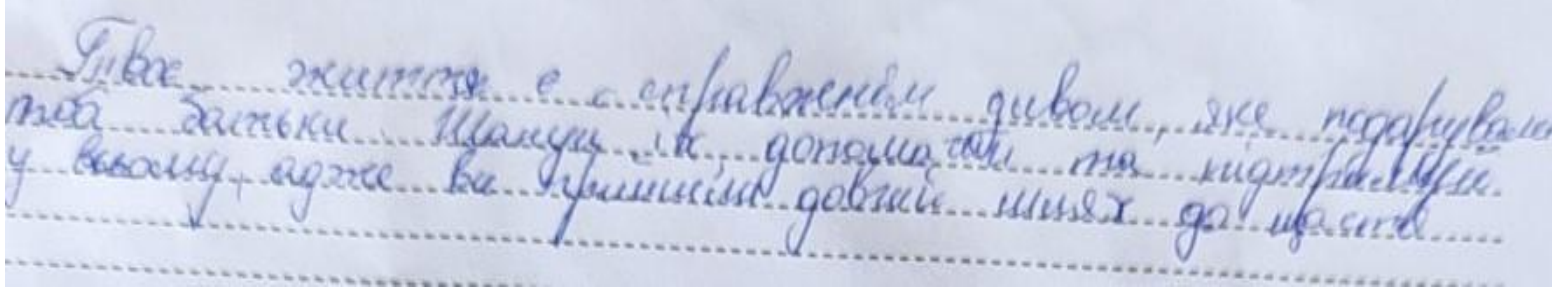 Твоє життя є справжнім дивом, яке подарували
тобі батьки. Шануй їх, допомагай та підтримуй
у всьому, адже ви пройшли довгий шлях до щастя